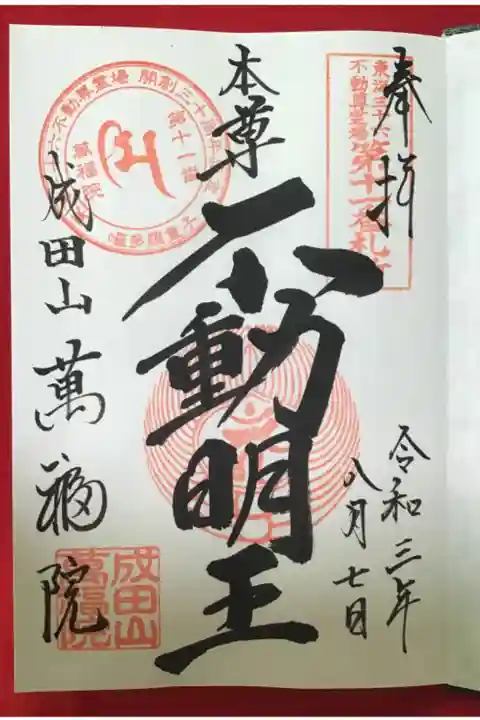 奉拝
東海三十六
不動尊霊場
第十一番札所
令和三年
八月七日
本尊
不動明王
開創三十周年
第十一番
萬福院
成田山萬福院
成田山
萬福院